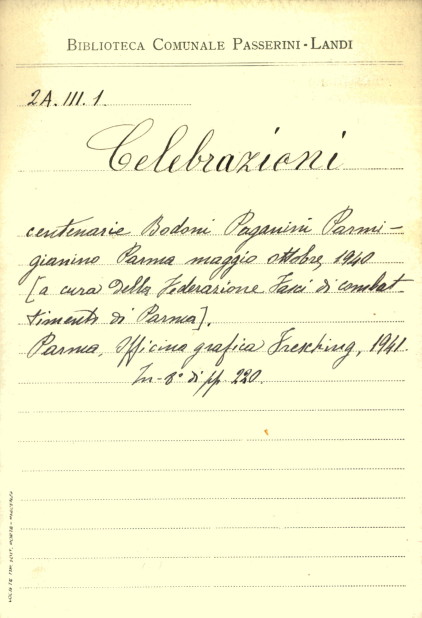 BIBLIOTECA COMUNALE PASSERINI-LANDI
2A. III. 1.
Celebrazioni
centenarie Bodoni Paganini Parmi-
gianino Parma maggio ottobre, 1940
[a cura della Federazione Fasci di combat-
timento di Parma].
Parma, Officina grafica Fresching, 1941.
In-8° di pp. 220.